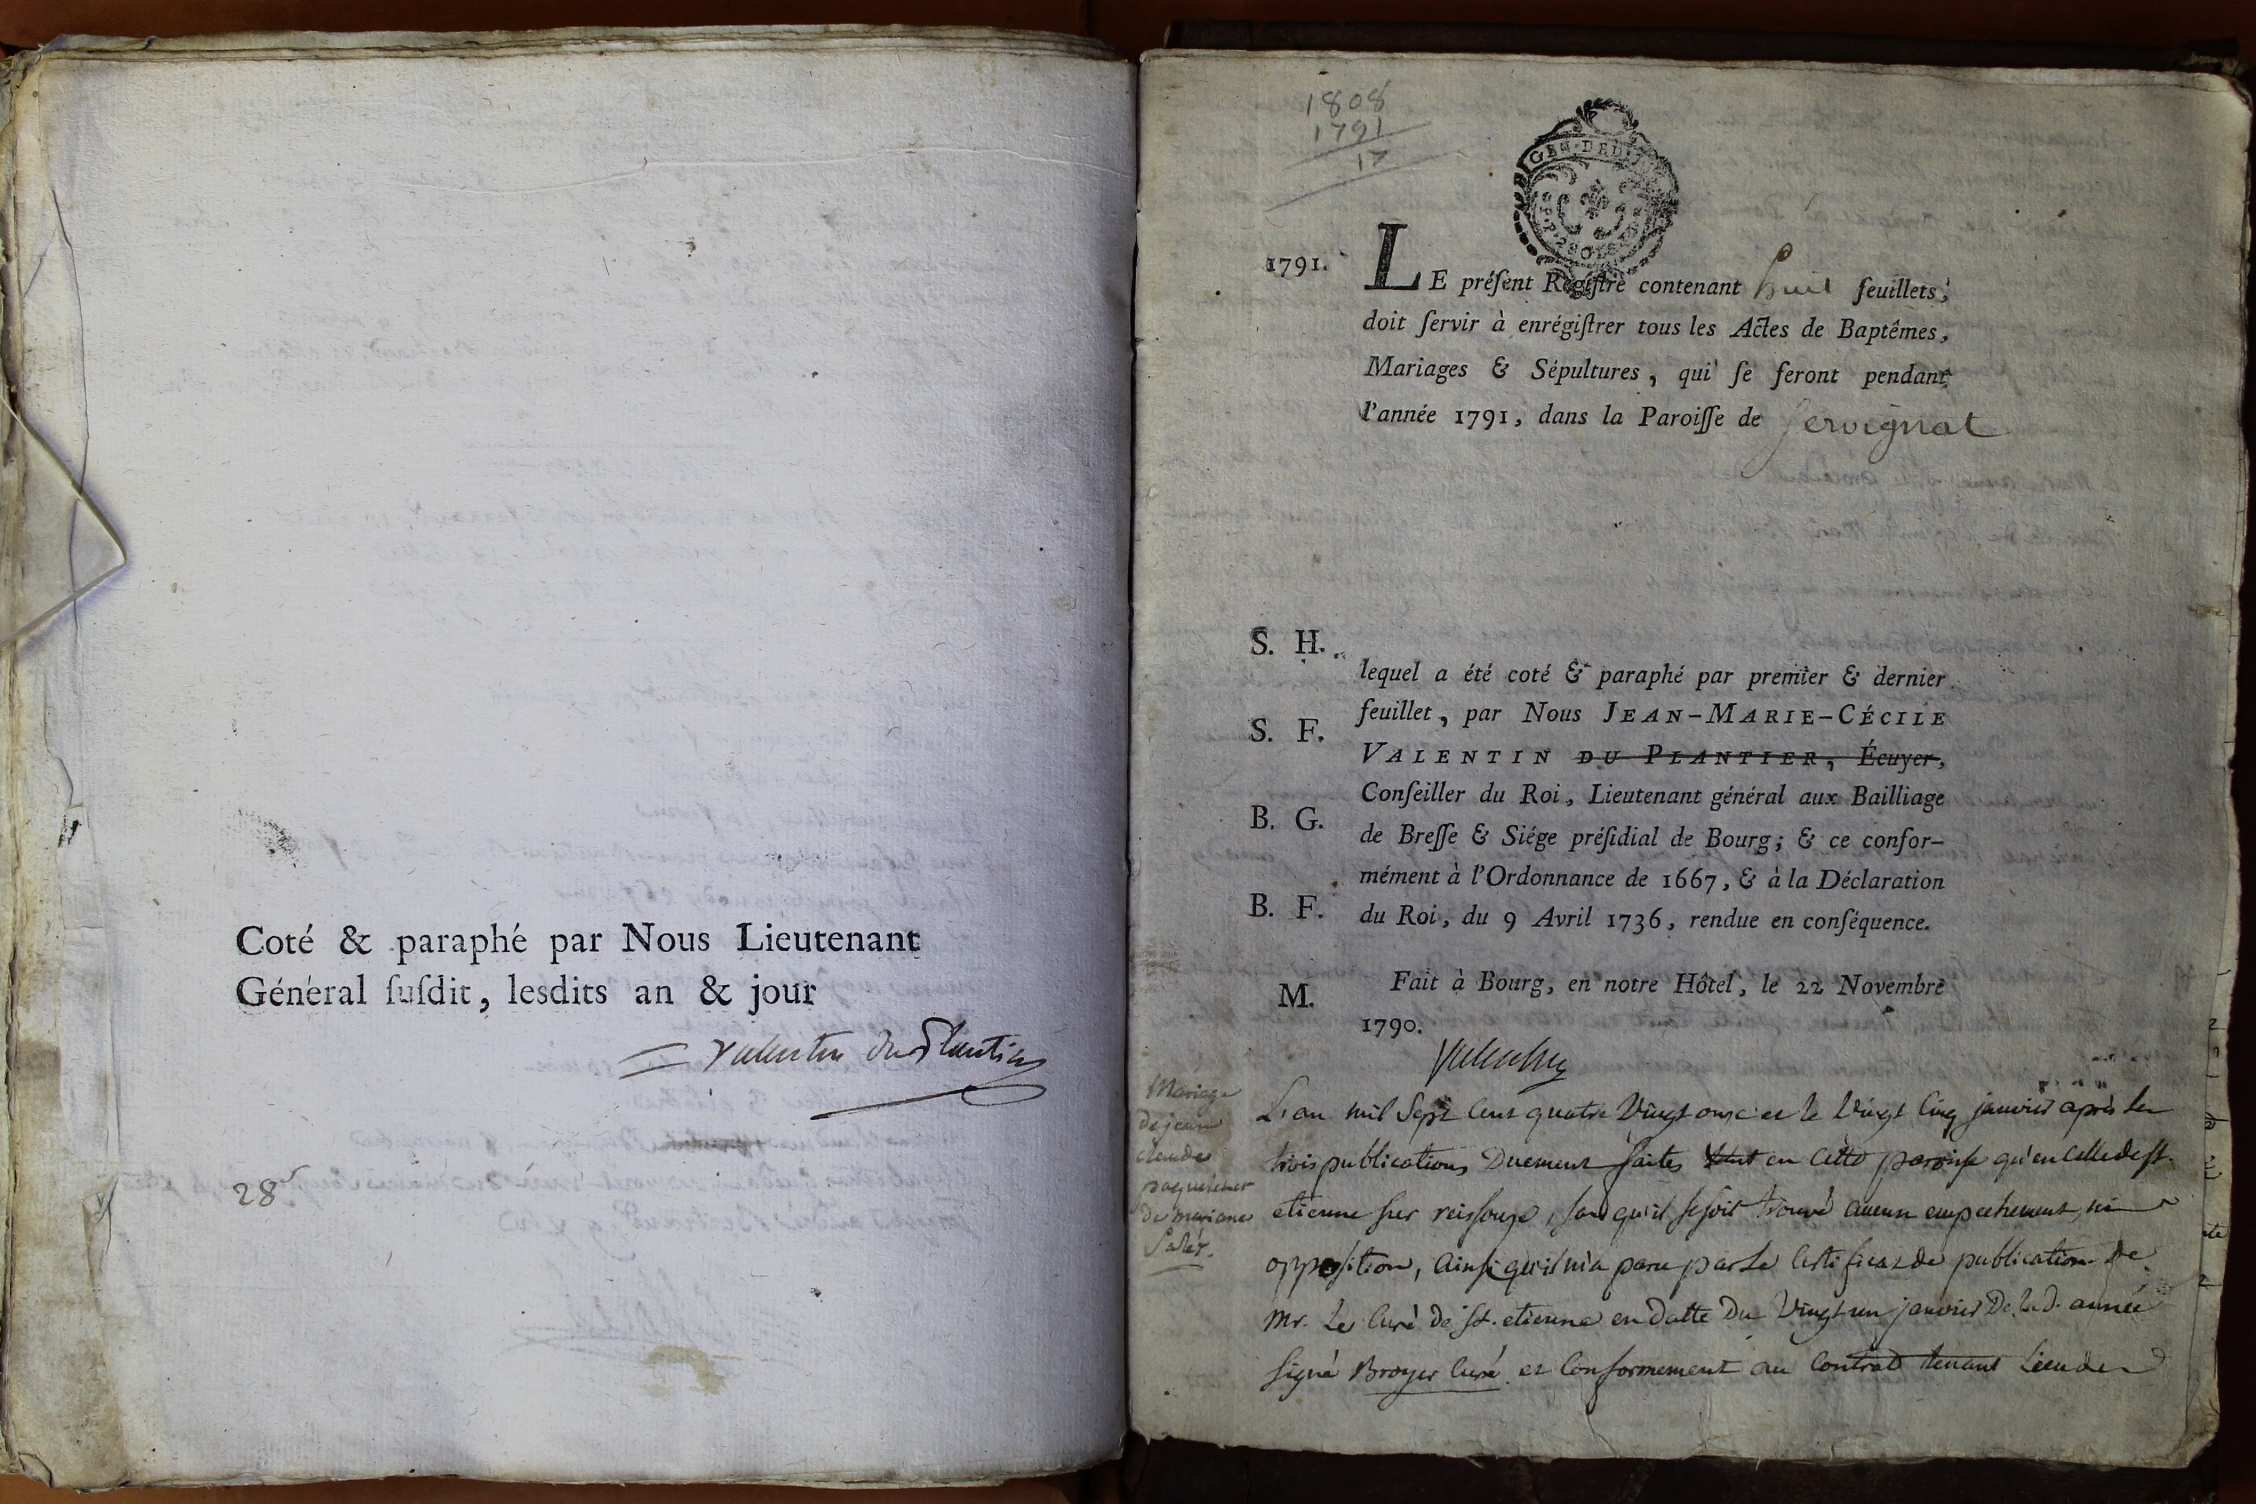 Coté & paraphé par Nous Lieutenant
Général ſuſdit, lesdits an & jour
Valentin duPlantier
28
1808
1791
17
GEN. DE
1791.
LE préſent Regiſtre contenant huit feuillets,
doit ſervir à enrégiſtrer tous les Actes de Baptêmes,
Mariages & Sépultures, qui ſe feront pendant
l'année 1791, dans la Paroiſſe de Servignat
S. H.
lequel a été coté & paraphé par premier & dernier
feuillet, par Nous JEAN-MARIE-CÉCILE
S. F.
VALENTIN DU PLANTIER, Écuyer,
Conſeiller du Roi, Lieutenant général aux Bailliage
B. G.
de Breſſe & Siége préſidial de Bourg; & ce confor-
mément à l'Ordonnance de 1667, & à la Déclaration
B. F.
du Roi, du 9 Avril 1736, rendue en conſéquence.
M.
Fait à Bourg, en notre Hôtel, le 22 Novembre
1790.
Valentin
Mariage
de jean
claude
de mariane
L'an mil Sept Cent quatre Vingt onze et le Vingt Cinq janvier après les
trois publications Duement faites en Cette paroisse qu'en Celle de st.
etienne sur reissouze, sans qu'il se soit trouvé aucun empechement, ni
opposition, ainsi qu'il m'a paru par Le Certificat de publication de
Mr. Le Curé de st. etienne en datte Du Vingt un janvier De lad. année
signé Broyer Curé et Conformement au Contrat tenant Lieu de